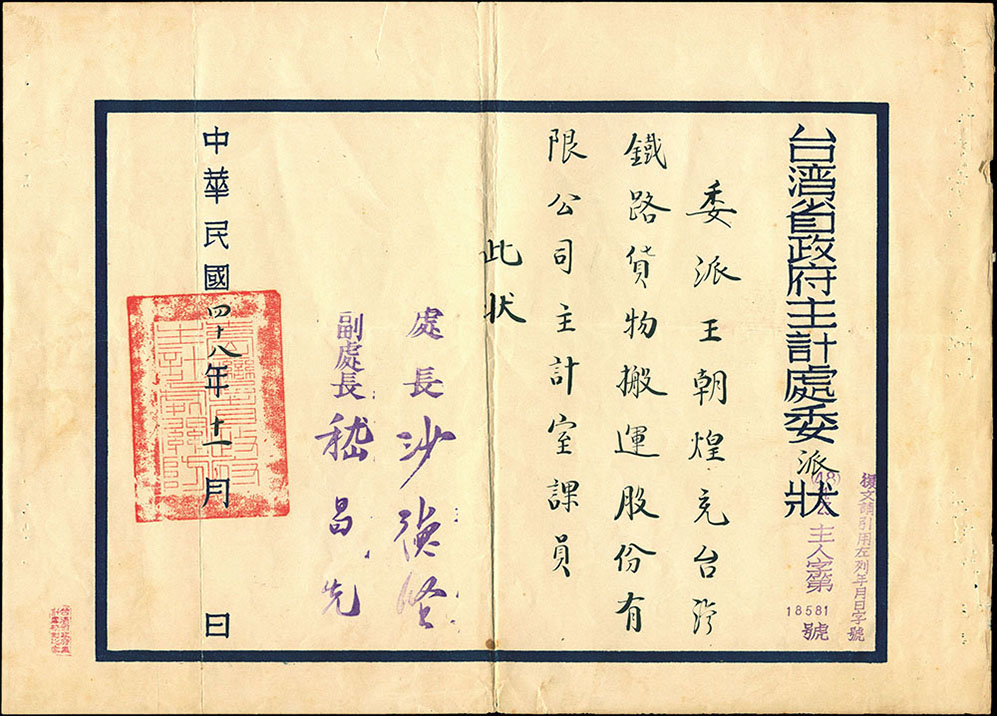 覆文請引用左列年月日字號
台灣省政府主計處委派狀
(48)
主人字第
18581
號
委派王朝煌充台灣
鐵路貨物搬運股份有
限公司主計室課員
此狀
處長沙德堅
副處長嵇昌先
中華民國四十八年十一月 日